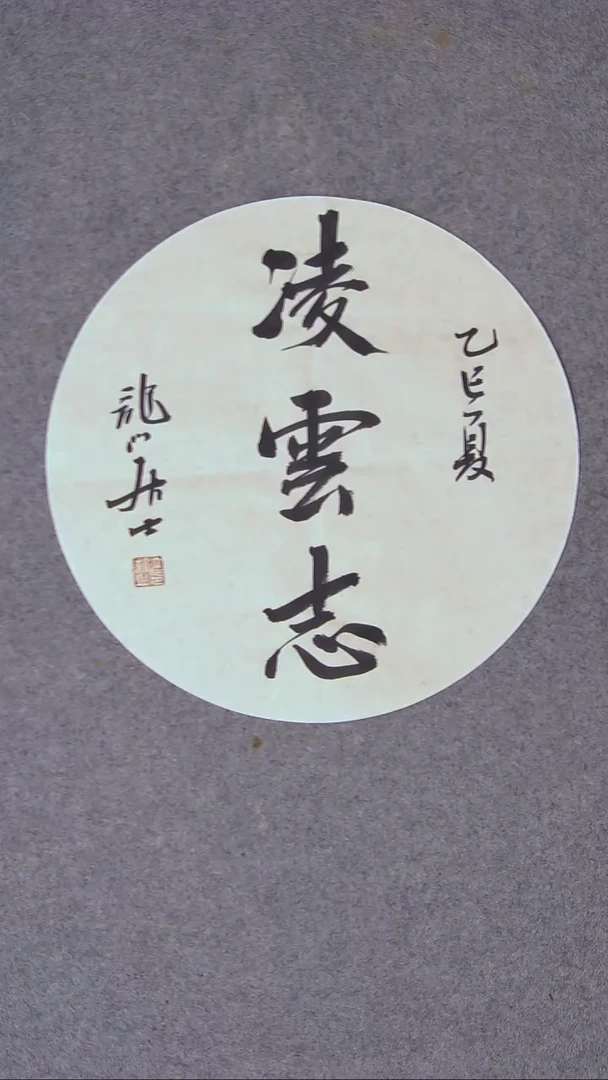 乙巳夏
凌雲志
龍门居士